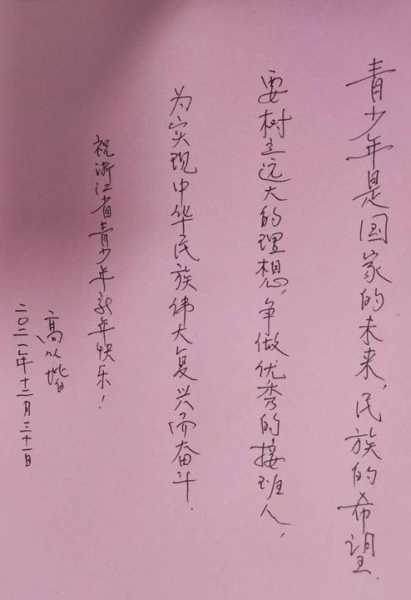 青少年是国家的未来,民族的希望.
要树立远大的理想,争做优秀的接班人,
为实现中华民族伟大复兴而奋斗.
祝浙江省青少年新年快乐!
高从堦
二〇二一年十二月三十一日